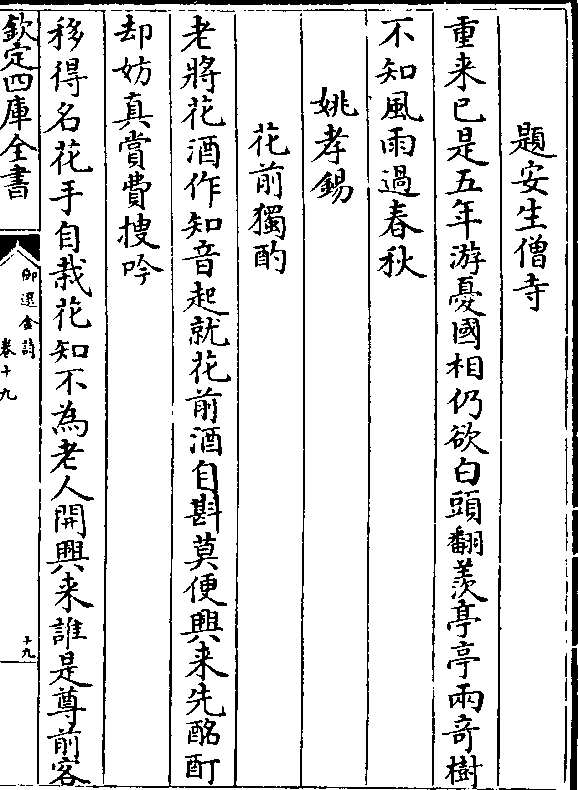 題安生僧寺
重来已是五年游憂國相仍欲白頭翻羡亭亭兩竒樹
不知風雨過春秋
姚孝錫
花前獨酌
老將花酒作知音起就花前酒自斟莫便興来先酩酊
却妨真賞費搜吟
移得名花手自栽花知不為老人開興来誰是尊前客
欽定四庫全書
御選金詩
卷十九
十九